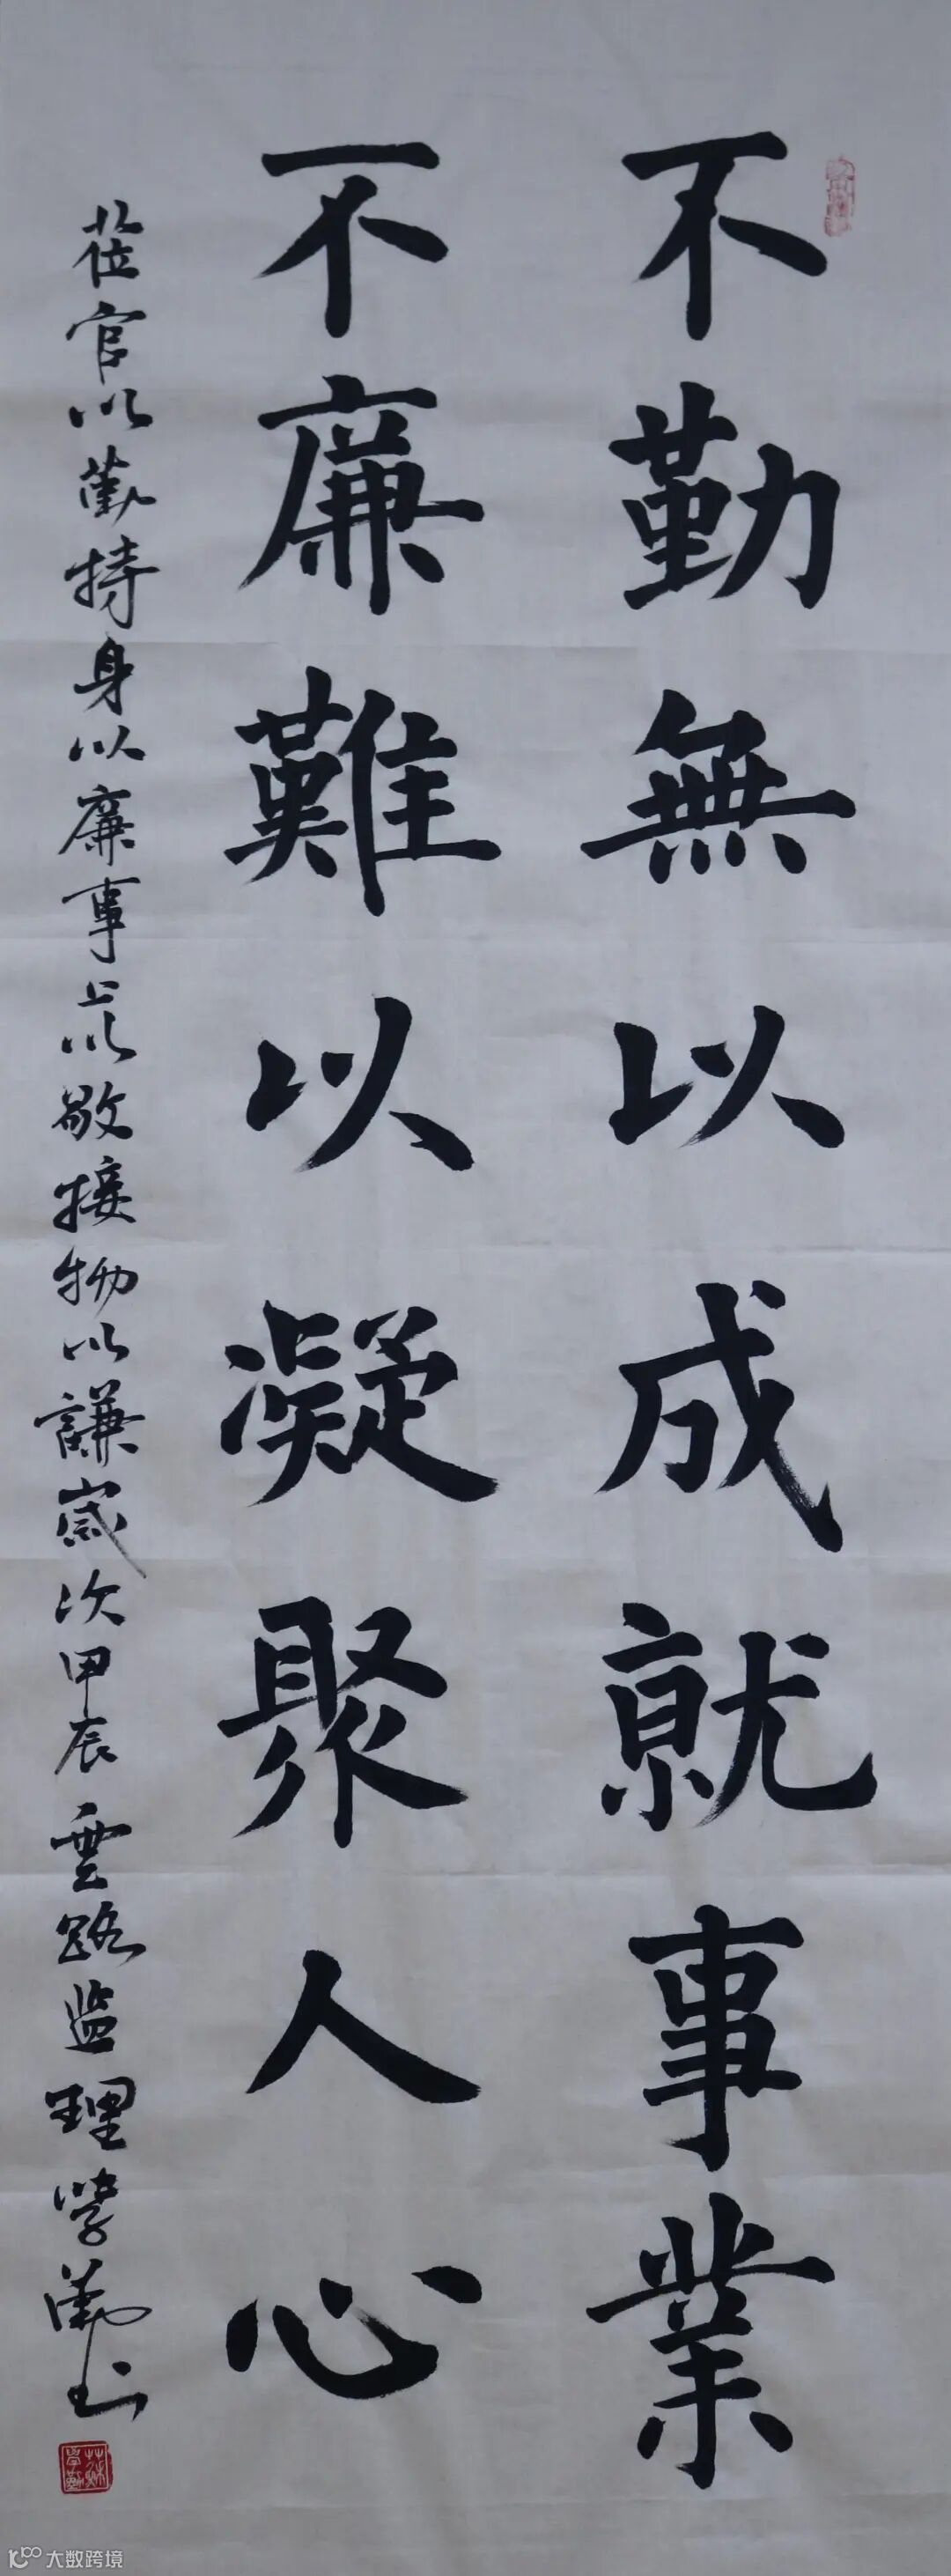 不勤無以成就事業
不廉難以凝聚人心
莅官以勤持身以廉事上以敬接物以謙歲次甲辰雲路监理學勤书
大数跨境